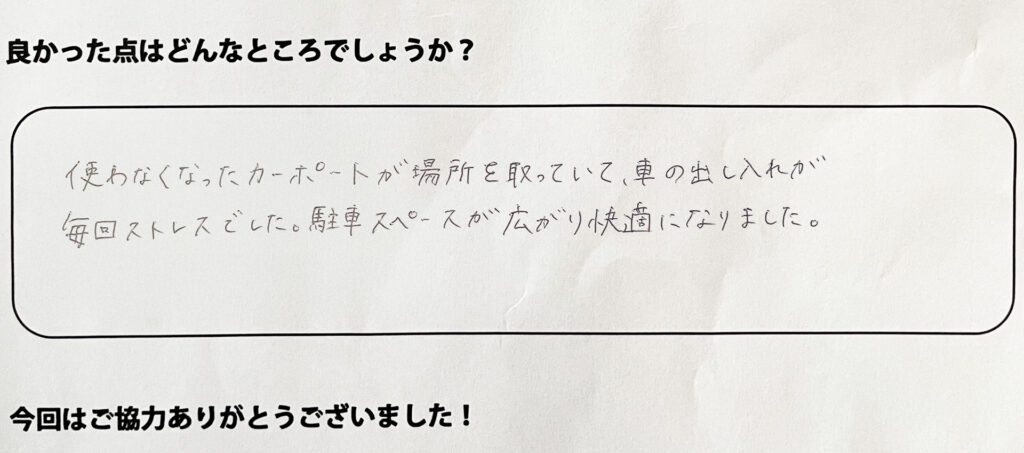 良かった点はどんなところでしょうか？
使わなくなったカーポートが場所を取っていて、車の出し入れが
毎回ストレスでした。駐車スペースが広がり快適になりました。
今回はご協力ありがとうございました！